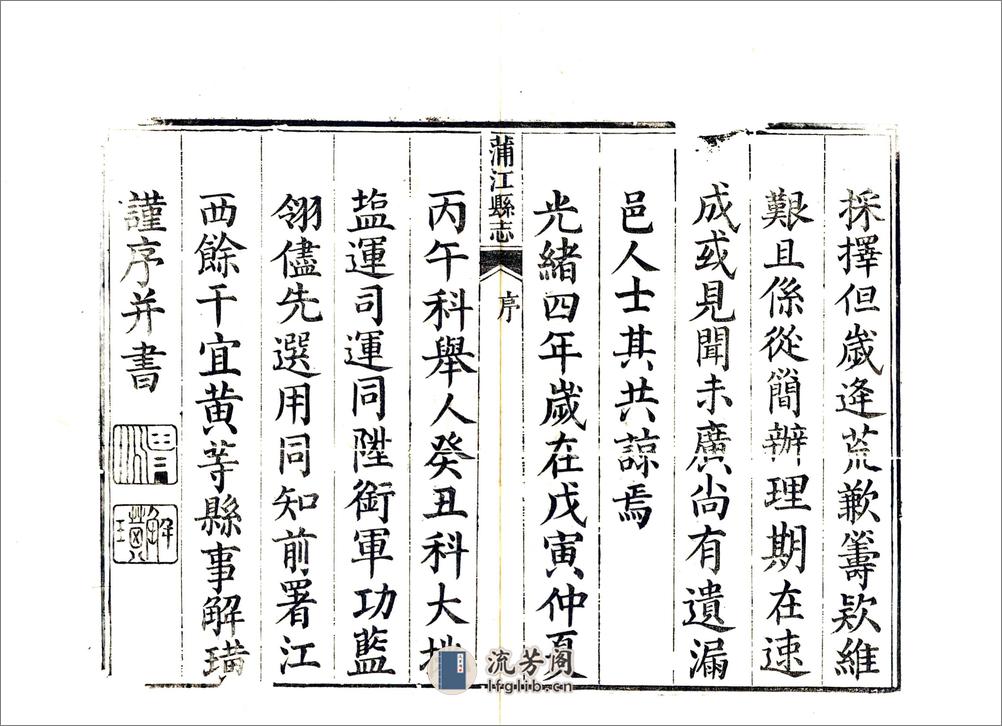 採擇但歲逢荒歉籌欵維
艱且係從簡辦理期在速
成或見聞未廣尚有遺漏
邑人士其共諒焉
光緒四年歲在戊寅仲夏
蒲江縣志
序
丙午科舉人癸丑科大挑
塩運司運同陞銜軍功藍
翎儘先選用同知前署江
西餘干宜黄等縣事解璜
謹序并書
解璜
流芳阁
lfglib.cn